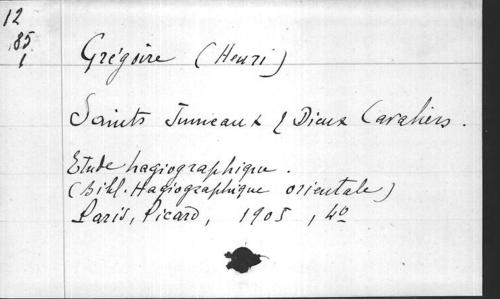 12
85
1
Grégoire (Henri)
Saints Jumeaux & Dieux Cavaliers.
Etude hagiographique.
(Bibl. Hagiographique orientale)
Paris, Picard, 1905, 4º